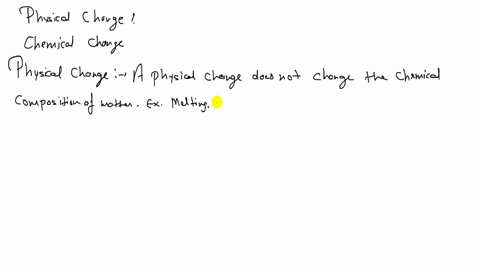 Physical Change &
Chemical change
Physical change :-> A physical change does not change the chemical
composition of matter. Ex. Melting.